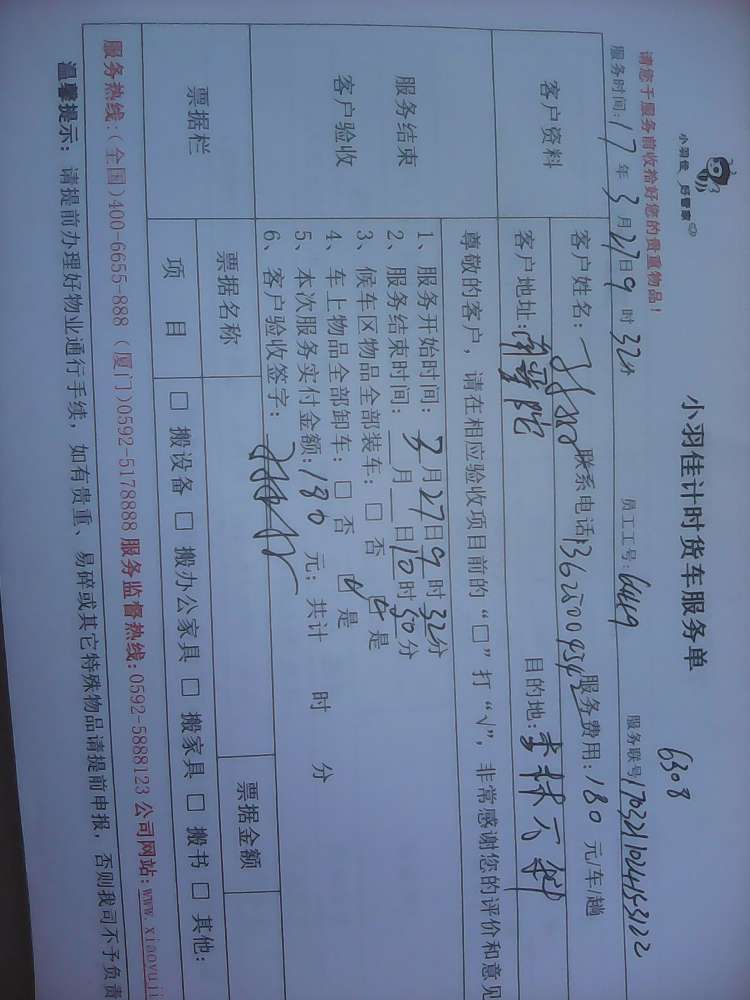 小羽佳 好管家
小羽佳计时货车服务单
6308
请您于服务前收拾好您的贵重物品!
服务时间:17年3月27日9时32分 员工工号:6449 服务联号
客户资料
客户姓名: 联系电话 服务费用:180元/车/趟
客户地址: 目的地:
服务结束
客户验收
尊敬的客户,请在相应验收项目前的“□”打“√”,非常感谢您的评价和意见
1、服务开始时间:3月27日9时32分
2、服务结束时间:__月__日10时50分
3、候车区物品全部装车:□ 否 ☑ 是
4、车上物品全部卸车:□ 否 ☑ 是
5、本次服务实付金额:180元;共计 时 分
6、客户验收签字:
票据栏
票据名称 票据金额
项 目 □ 搬设备 □ 搬办公家具 □ 搬家具 □ 搬书 □ 其他:
服务热线:(全国)400-6655-888 (厦门)0592-5178888 服务监督热线:0592-5888123 公司网站:www.xiaoyuji
温馨提示:请提前办理好物业通行手续,如有贵重、易碎或其它特殊物品请提前申报,否则我司不予负责